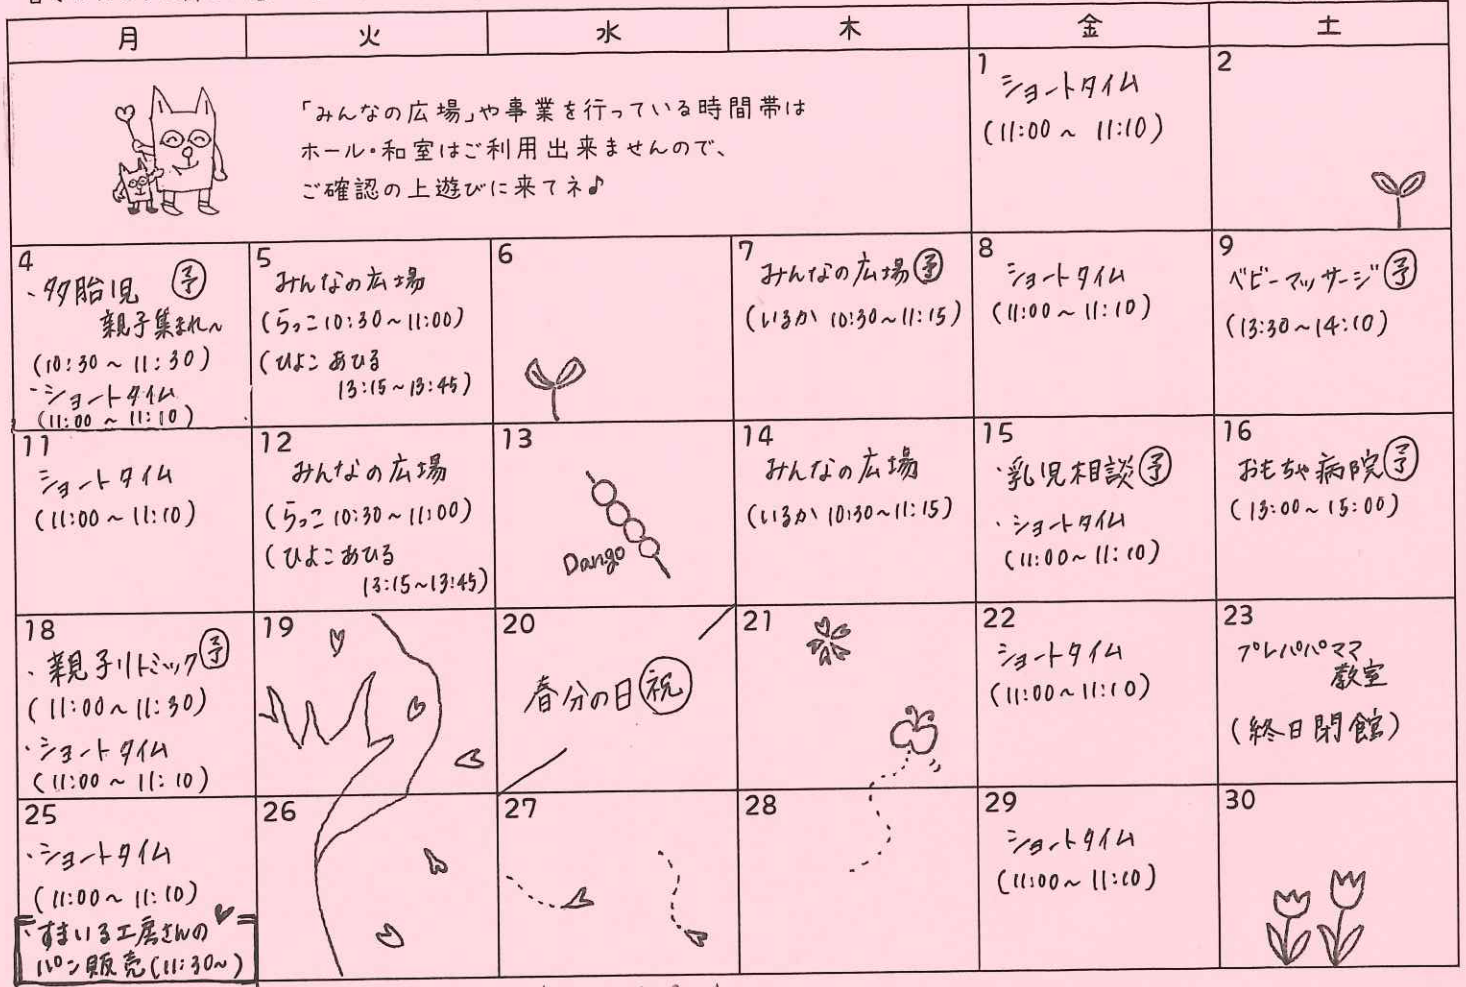 月 火 水 木 金 土
「みんなの広場」や事業を行っている時間帯は
ホール・和室はご利用出来ませんので、
ご確認の上遊びに来てネ♪
1
ショートタイム
(11:00～ 11:10)
2
4
・多胎児 予
親子集まれ～
(10:30～11:30)
・ショートタイム
(11:00～11:10)
5
みんなの広場
(らっこ10:30～11:00)
(ひよこ あひる
13:15～13:45)
6
7
みんなの広場 予
(いるか 10:30～11:15)
8
ショートタイム
(11:00～11:10)
9
ベビーマッサージ 予
(13:30～14:10)
11
ショートタイム
(11:00～11:10)
12
みんなの広場
(らっこ10:30～11:00)
(ひよこ あひる
13:15～13:45)
13
Dango
14
みんなの広場
(いるか 10:30～11:15)
15
・乳児相談 予
・ショートタイム
(11:00～11:10)
16
おもちゃ病院 予
(13:00～15:00)
18
・親子リトミック 予
(11:00～11:30)
・ショートタイム
(11:00～11:10)
19
20
春分の日 祝
21
22
ショートタイム
(11:00～11:10)
23
プレパパママ
教室
(終日閉館)
25
・ショートタイム
(11:00～11:10)
・すまいる工房さんの
パン販売(11:30～)
26
27
28
29
ショートタイム
(11:00～11:10)
30